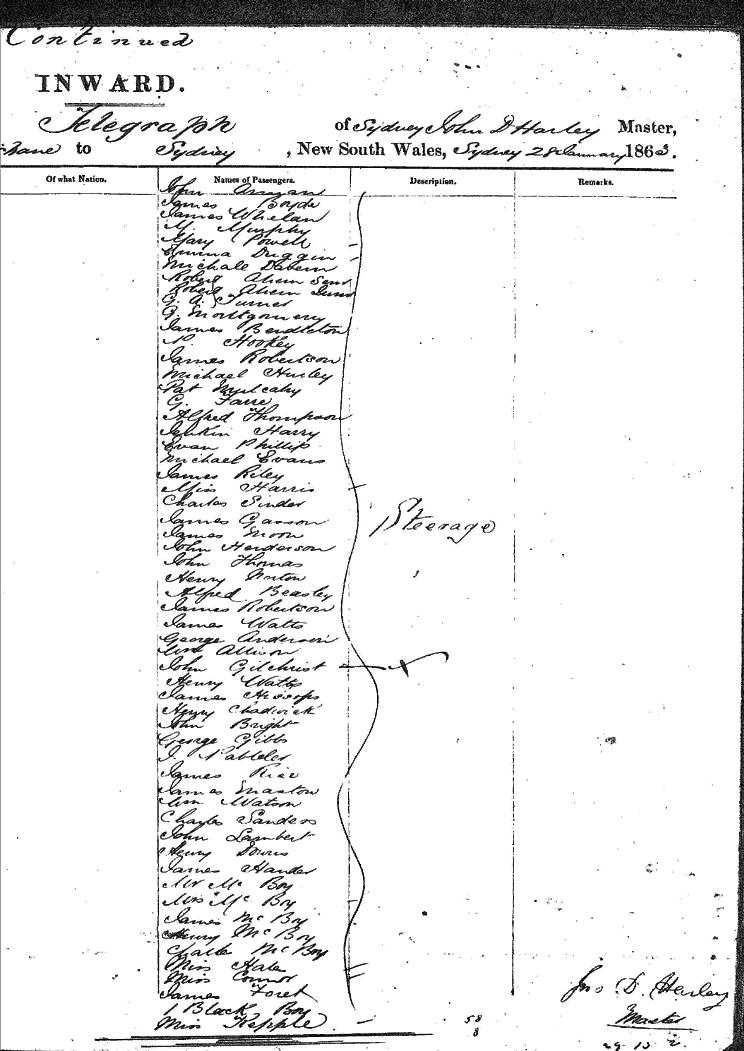 Continued
INWARD.
Telegraph of Sydney John D Harley Master,
to Sydney , New South Wales, Sydney 28 January 1863.
Of what Nation. Names of Passengers. Description. Remarks.
John
James Boyde
James Whelan
M. Murphy
Mary Powell
Emma Duggin
Michale
Robert Ahern Senr
Robert Ahern Junr
G. A. Turner
G. Montgomery
James Bendleton
Hookey
James Robertson
Michael Hurley
Pat Mulcahy
G. Farre
Alfred Thompson
Jenkin Harry
Evan Phillip
Michael Evans
James Riley
Miss Harris
Charles Sinder
James Gasson
James Moon
John Henderson
John Thomas
Henry
Alfred Beasley
James Robertson
James Watts
George Anderson
Wm Allison
John Gilchrist
Henry Watts
James
Henry Chadwick
John Bright
George Gibbs
J.
James Rice
James Maston
Wm Watson
Charles Sanders
John Lambert
Henry
James Hander
Mr Mc Boy
Mrs Mc Boy
James Mc Boy
Henry Mc Boy
Mc Boy
Miss Hale
Miss Connor
James Foret
1 Black Boy
Miss Kepple
Steerage
58
8
Jno D. Harley
Master